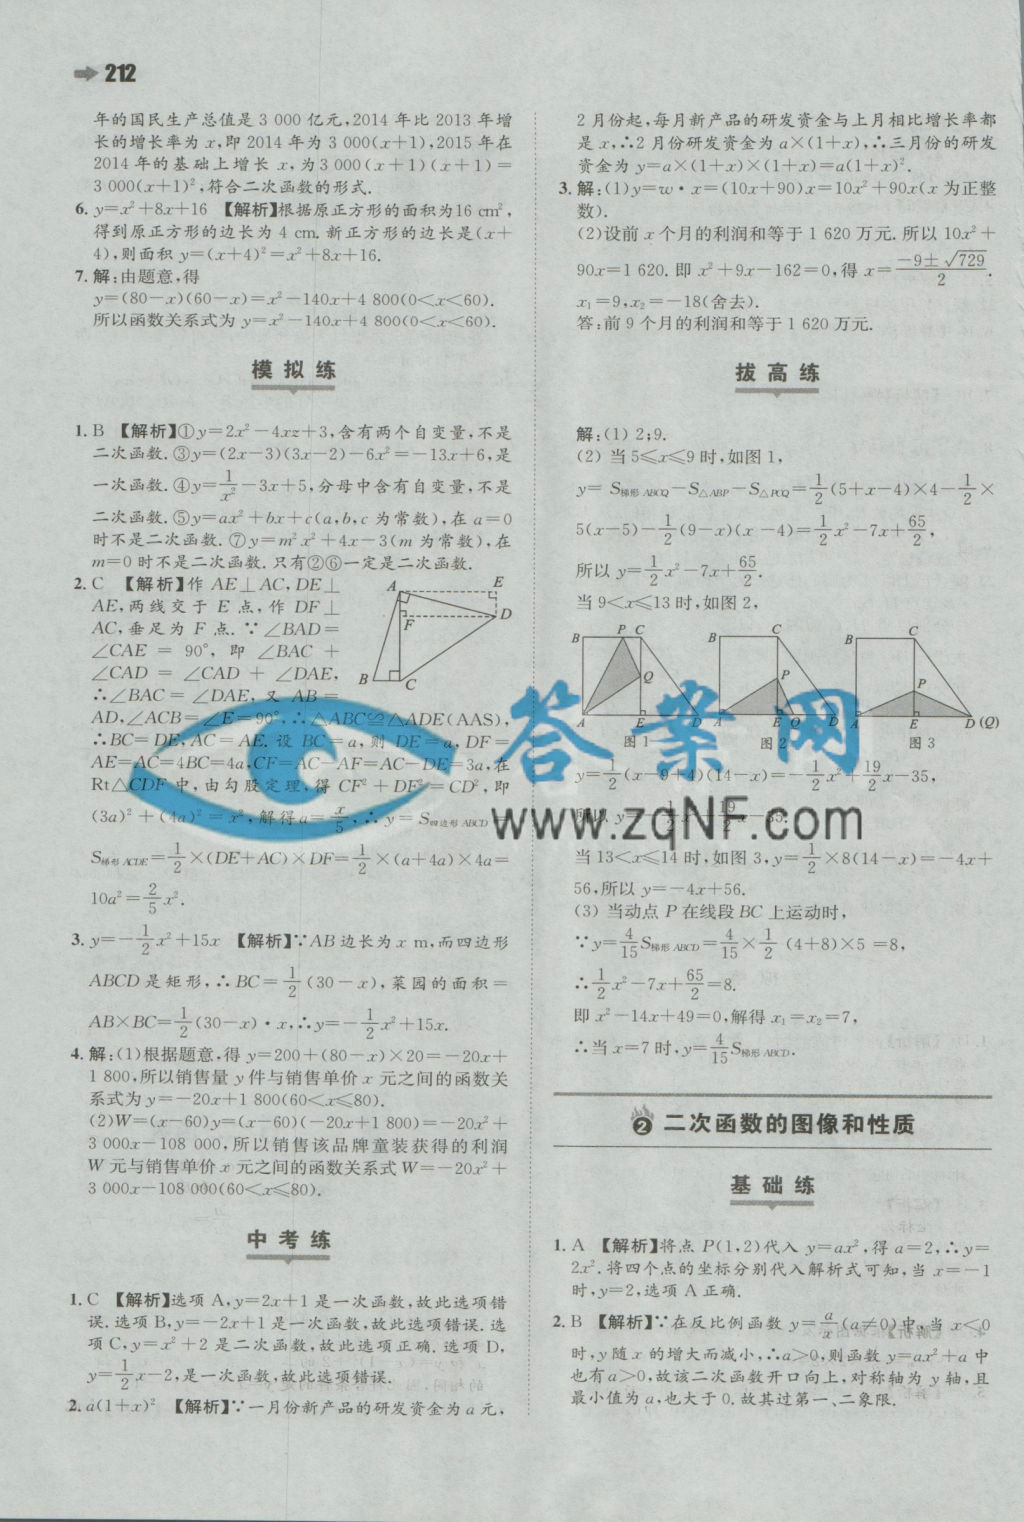 212
年的国民生产总值是 3 000 亿元,2014 年比 2013 年增
长的增长率为 x,即 2014 年为 3 000(x+1),2015 年在
2014 年的基础上增长 x,为 3 000(x+1)(x+1)=
3 000(x+1)²,符合二次函数的形式.
6. y=x²+8x+16 【解析】根据原正方形的面积为16 cm²,
得到原正方形的边长为 4 cm.新正方形的边长是(x+
4),则面积 y=(x+4)²=x²+8x+16.
7. 解:由题意,得
y=(80-x)(60-x)=x²-140x+4 800(0<x<60).
所以函数关系式为 y=x²-140x+4 800(0<x<60).
模拟练
1. B 【解析】①y=2x²-4xz+3,含有两个自变量,不是
二次函数.③y=(2x-3)(3x-2)-6x²=-13x+6,是
一次函数.④y=1/x²-3x+5,分母中含有自变量,不是
二次函数.⑤y=ax²+bx+c(a,b,c 为常数),在 a=0
时不是二次函数.⑦y=m²x²+4x-3(m 为常数),在
m=0 时不是二次函数.只有②⑥一定是二次函数.
2. C 【解析】作 AE⊥AC,DE⊥
AE,两线交于 E 点,作 DF⊥
AC,垂足为 F 点.∵∠BAD=
∠CAE = 90°, 即 ∠BAC +
∠CAD = ∠CAD + ∠DAE,
∴∠BAC = ∠DAE, 又 AB =
AD,∠ACB=∠E=90°,∴△ABC≌△ADE(AAS),
∴BC=DE,AC=AE.设 BC=a,则 DE=a,DF=
AE=AC=4BC=4a,CF=AC-AF=AC-DE=3a,在
Rt△CDF 中,由勾股定理,得 CF²+DF²=CD²,即
(3a)²+(4a)²=x²,解得a=x/5,∴y=S四边形ABCD=
S梯形ACDE=1/2×(DE+AC)×DF=1/2×(a+4a)×4a=
10a²=2/5x².
A E
F D
B C
3. y=-1/2x²+15x 【解析】∵AB边长为 x m,而四边形
ABCD 是矩形,∴BC=1/2(30-x),菜园的面积=
AB×BC=1/2(30-x)·x,∴y=-1/2x²+15x.
4. 解:(1)根据题意,得 y=200+(80-x)×20=-20x+
1 800,所以销售量 y 件与销售单价 x 元之间的函数关
系式为 y=-20x+1 800(60<x≤80).
(2)W=(x-60)y=(x-60)(-20x+1 800)=-20x²+
3 000x-108 000,所以销售该品牌童装获得的利润
W 元与销售单价 x 元之间的函数关系式 W=-20x²+
3 000x-108 000(60<x≤80).
中考练
1. C 【解析】选项 A,y=2x+1 是一次函数,故此选项错
误.选项 B,y=-2x+1 是一次函数,故此选项错误.选
项 C,y=x²+2 是二次函数,故此选项正确.选项 D,
y=1/2x-2,是一次函数,故此选项错误.
2. a(1+x)² 【解析】∵一月份新产品的研发资金为 a 元,
2 月份起,每月新产品的研发资金与上月相比增长率都
是 x,∴2 月份研发资金为 a×(1+x),∴三月份的研发
资金为 y=a×(1+x)×(1+x)=a(1+x)².
3. 解:(1)y=w·x=(10x+90)x=10x²+90x(x 为正整
数).
(2)设前 x 个月的利润和等于 1 620 万元.所以 10x²+
90x=1 620.即 x²+9x-162=0,得 x=(-9±√729)/2.
x₁=9,x₂=-18(舍去).
答:前 9 个月的利润和等于 1 620 万元.
拔高练
解:(1) 2;9.
(2) 当 5≤x≤9 时,如图 1,
y=S梯形ABCQ-S△ABP-S△PCQ=1/2(5+x-4)×4-1/2×
5(x-5)-1/2(9-x)(x-4)=1/2x²-7x+65/2,
所以 y=1/2x²-7x+65/2.
当 9<x≤13 时,如图 2,
B P C
Q
A E D
图 1
B C
P
A E Q D
图 2
B C
P
A E D(Q)
图 3
y=1/2(x-9+4)(14-x)=-1/2x²+19/2x-35,
所以 y=-1/2x²+19/2x-35.
当 13<x≤14 时,如图 3,y=1/2×8(14-x)=-4x+
56,所以 y=-4x+56.
(3) 当动点 P 在线段 BC 上运动时,
∵y=4/15S梯形ABCD=4/15×1/2(4+8)×5=8,
∴1/2x²-7x+65/2=8.
即 x²-14x+49=0,解得 x₁=x₂=7,
∴当 x=7 时,y=4/15S梯形ABCD.
2 二次函数的图像和性质
基础练
1. A 【解析】将点 P(1,2)代入 y=ax²,得 a=2,∴y=
2x².将四个点的坐标分别代入解析式可知,当 x=-1
时,y=2,选项 A 正确.
2. B 【解析】∵在反比例函数 y=a/x(a≠0)中,当 x<0
时,y 随 x 的增大而减小,∴a>0,则函数 y=ax²+a 中
也有 a>0,故该二次函数开口向上,对称轴为 y 轴,且
最小值为 a,也大于 0.故其过第一、二象限.
答案网
www.zqNF.com